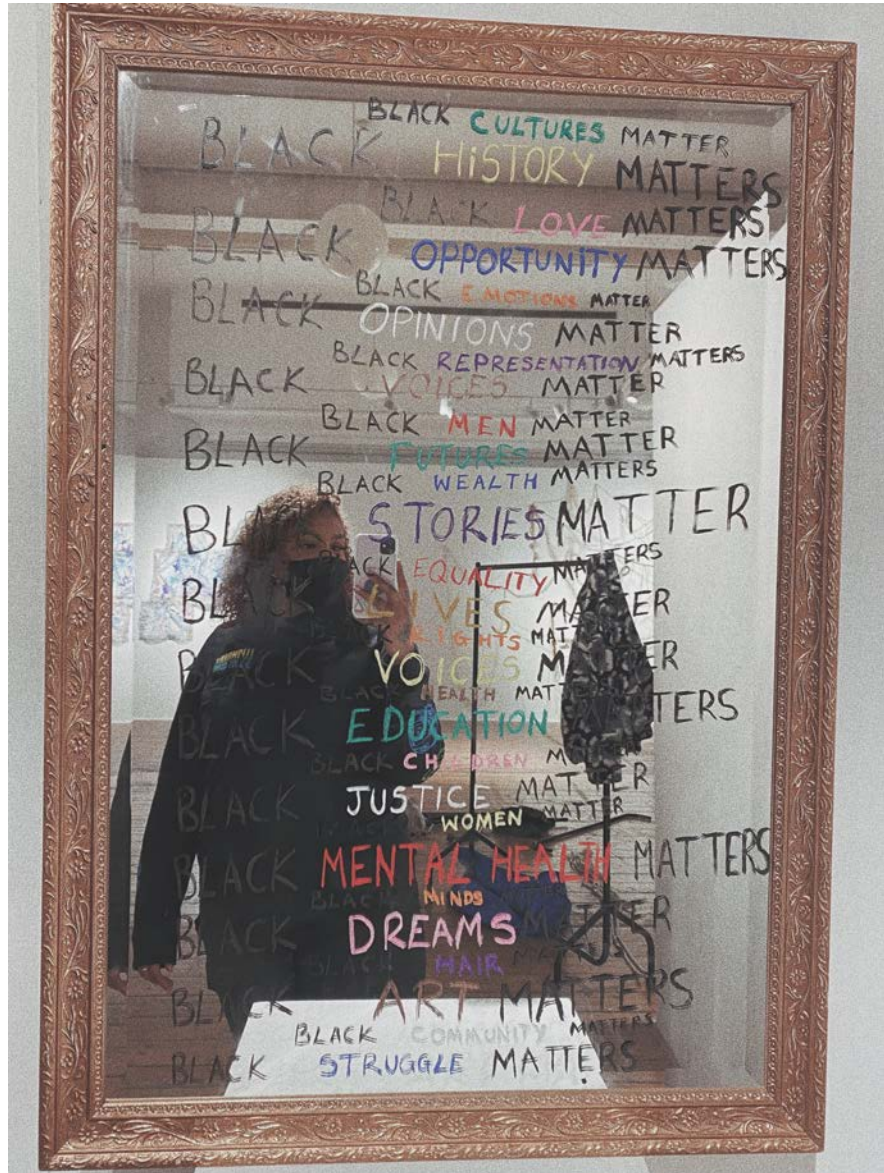 BLACK CULTURES MATTER
BLACK HiSTORY MATTERS
BLACK LOVE MATTERS
BLACK OPPORTUNiTY MATTERS
BLACK EMOTIONS MATTER
BLACK OPINIONS MATTER
BLACK REPRESENTATION MATTERS
BLACK VOICES MATTER
BLACK MEN MATTER
BLACK FUTURES MATTER
BLACK WEALTH MATTERS
BLACK STORIES MATTER
BLACK EQUALITY MATTERS
BLACK LIVES MATTER
BLACK RIGHTS MATTER
BLACK VOICES MATTER
BLACK HEALTH MATTERS
BLACK EDUCATION MATTERS
BLACK CHILDREN MATTER
BLACK JUSTICE MATTER
BLACK WOMEN MATTER
BLACK MENTAL HEALTH MATTERS
BLACK MINDS
BLACK DREAMS MATTER
BLACK HAIR
BLACK ART MATTERS
BLACK COMMUNITY MATTERS
BLACK STRUGGLE MATTERS